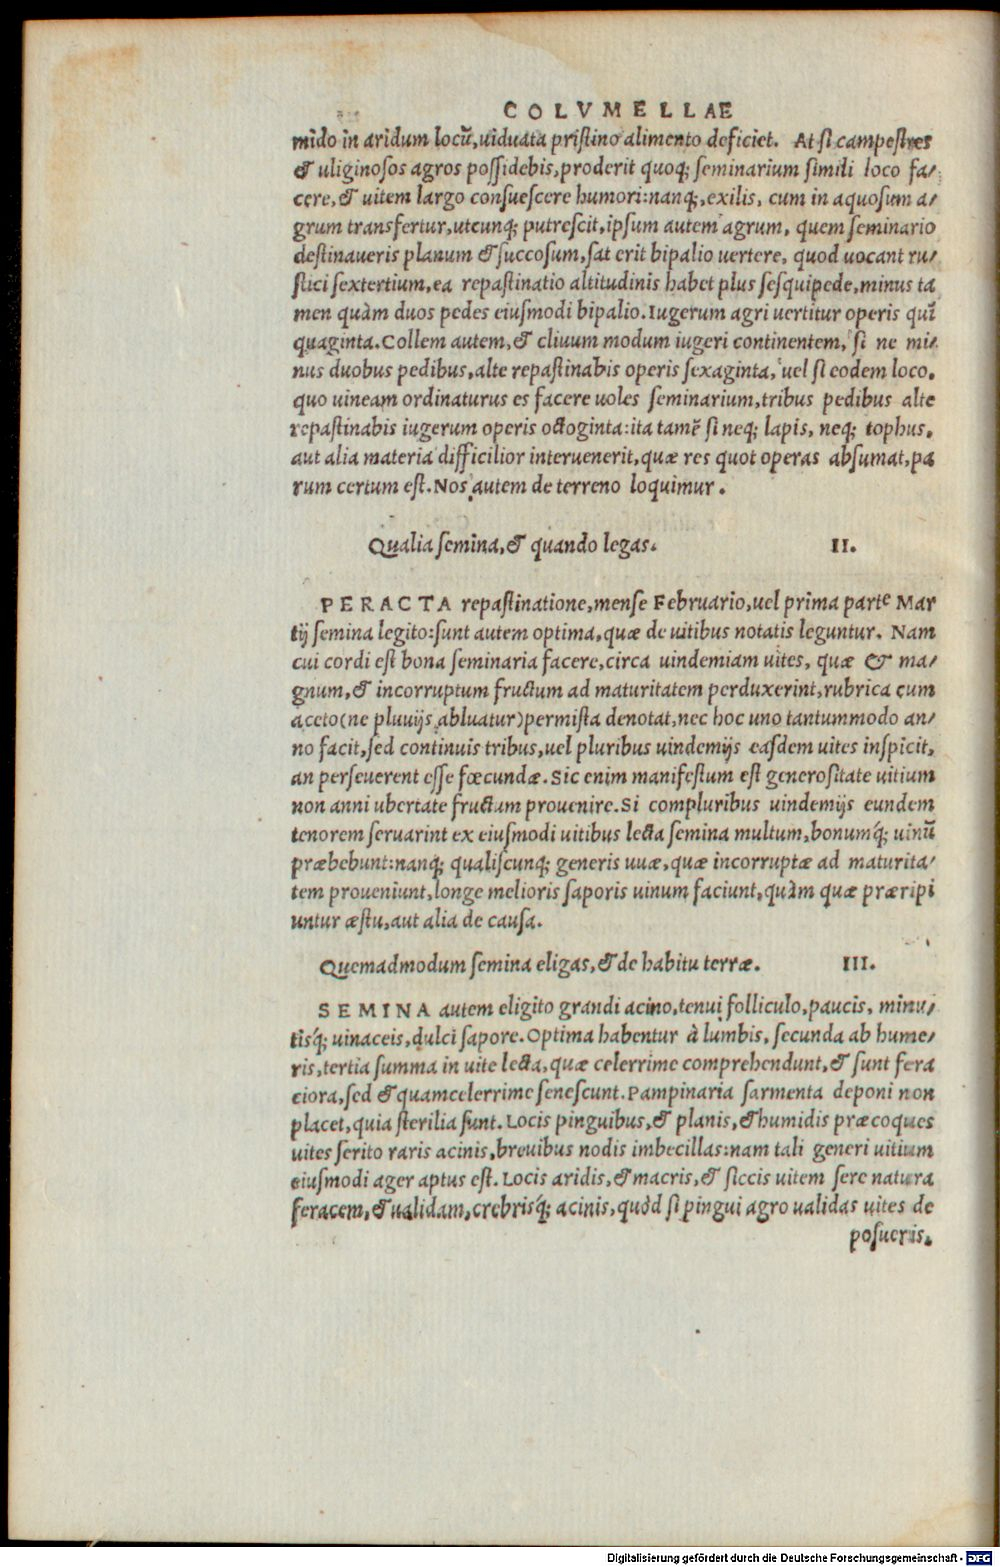 COLVMELLAE
mido in aridum locũ, uiduata pristino alimento deficiet. At si campestres
& uliginosos agros possidebis, proderit quoq; seminarium simili loco fa/
cere, & uitem largo consuescere humori: nanq;, exilis, cum in aquosum a/
grum transfertur, utcunq; putrescit, ipsum autem agrum, quem seminario
destinaueris planum & succosum, sat erit bipalio uertere, quod uocant ru/
stici sextertium, ea repastinatio altitudinis habet plus sesquipede, minus ta
men quàm duos pedes eiusmodi bipalio. Iugerum agri uertitur operis quĩ
quaginta. Collem autem, & cliuum modum iugeri continentem, si ne mi/
nus duobus pedibus, alte repastinabis operis sexaginta, uel si eodem loco.
quo uineam ordinaturus es facere uoles seminarium, tribus pedibus alte
repastinabis iugerum operis octoginta: ita tamẽ si neq; lapis, neq; tophus,
aut alia materia difficilior interuenerit, quæ res quot operas absumat, pa
rum certum est. Nos autem de terreno loquimur.
Qualia semina, & quando legas. II.
PERACTA repastinatione, mense Februario, uel prima parte Mar
tij semina legito: sunt autem optima, quæ de uitibus notatis leguntur. Nam
cui cordi est bona seminaria facere, circa uindemiam uites, quæ & ma/
gnum, & incorruptum fructum ad maturitatem perduxerint, rubrica cum
aceto (ne pluuijs abluatur) permista denotat, nec hoc uno tantummodo an/
no facit, sed continuis tribus, uel pluribus uindemijs easdem uites inspicit,
an perseuerent esse fœcundæ. Sic enim manifestum est generositate uitium
non anni ubertate fructum prouenire. Si compluribus uindemijs eundem
tenorem seruarint ex eiusmodi uitibus lecta semina multum, bonumq́; uinũ
præbebunt: nanq; qualiscunq; generis uuæ, quæ incorruptæ ad maturita/
tem proueniunt, longe melioris saporis uinum faciunt, quàm quæ præripi
untur æstu, aut alia de causa.
Quemadmodum semina eligas, & de habitu terræ. III.
SEMINA autem eligito grandi acino, tenui folliculo, paucis, minu/
tisq́; uinaceis, dulci sapore. Optima habentur à lumbis, secunda ab hume/
ris, tertia summa in uite lecta, quæ celerrime comprehendunt, & sunt fera
ciora, sed & quamcelerrime senescunt. Pampinaria sarmenta deponi non
placet, quia sterilia sunt. Locis pinguibus, & planis, & humidis præcoques
uites serito raris acinis, breuibus nodis imbecillas: nam tali generi uitium
eiusmodi ager aptus est. Locis aridis, & macris, & siccis uitem sere natura
feracem, & ualidam, crebrisq́; acinis, quòd si pingui agro ualidas uites de
posueris.
Digitalisierung gefördert durch die Deutsche Forschungsgemeinschaft - DFG